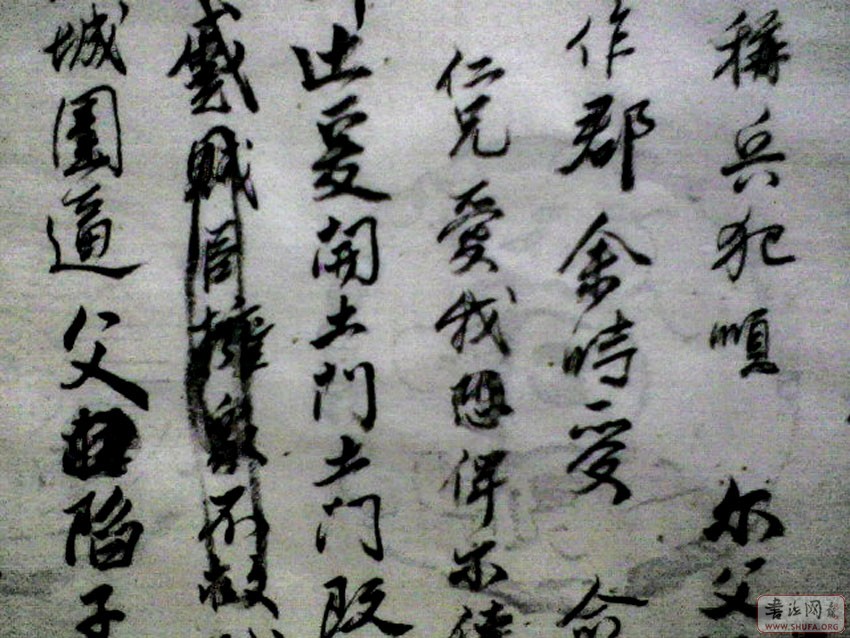 稱兵犯順 尔父
作郡 余時受 命
仁兄愛我恐俾尔
止爰開土門土門既
蹙賊臣擁衆不救
城圍逼父陷子
書法网
WWW.SHUFA.ORG